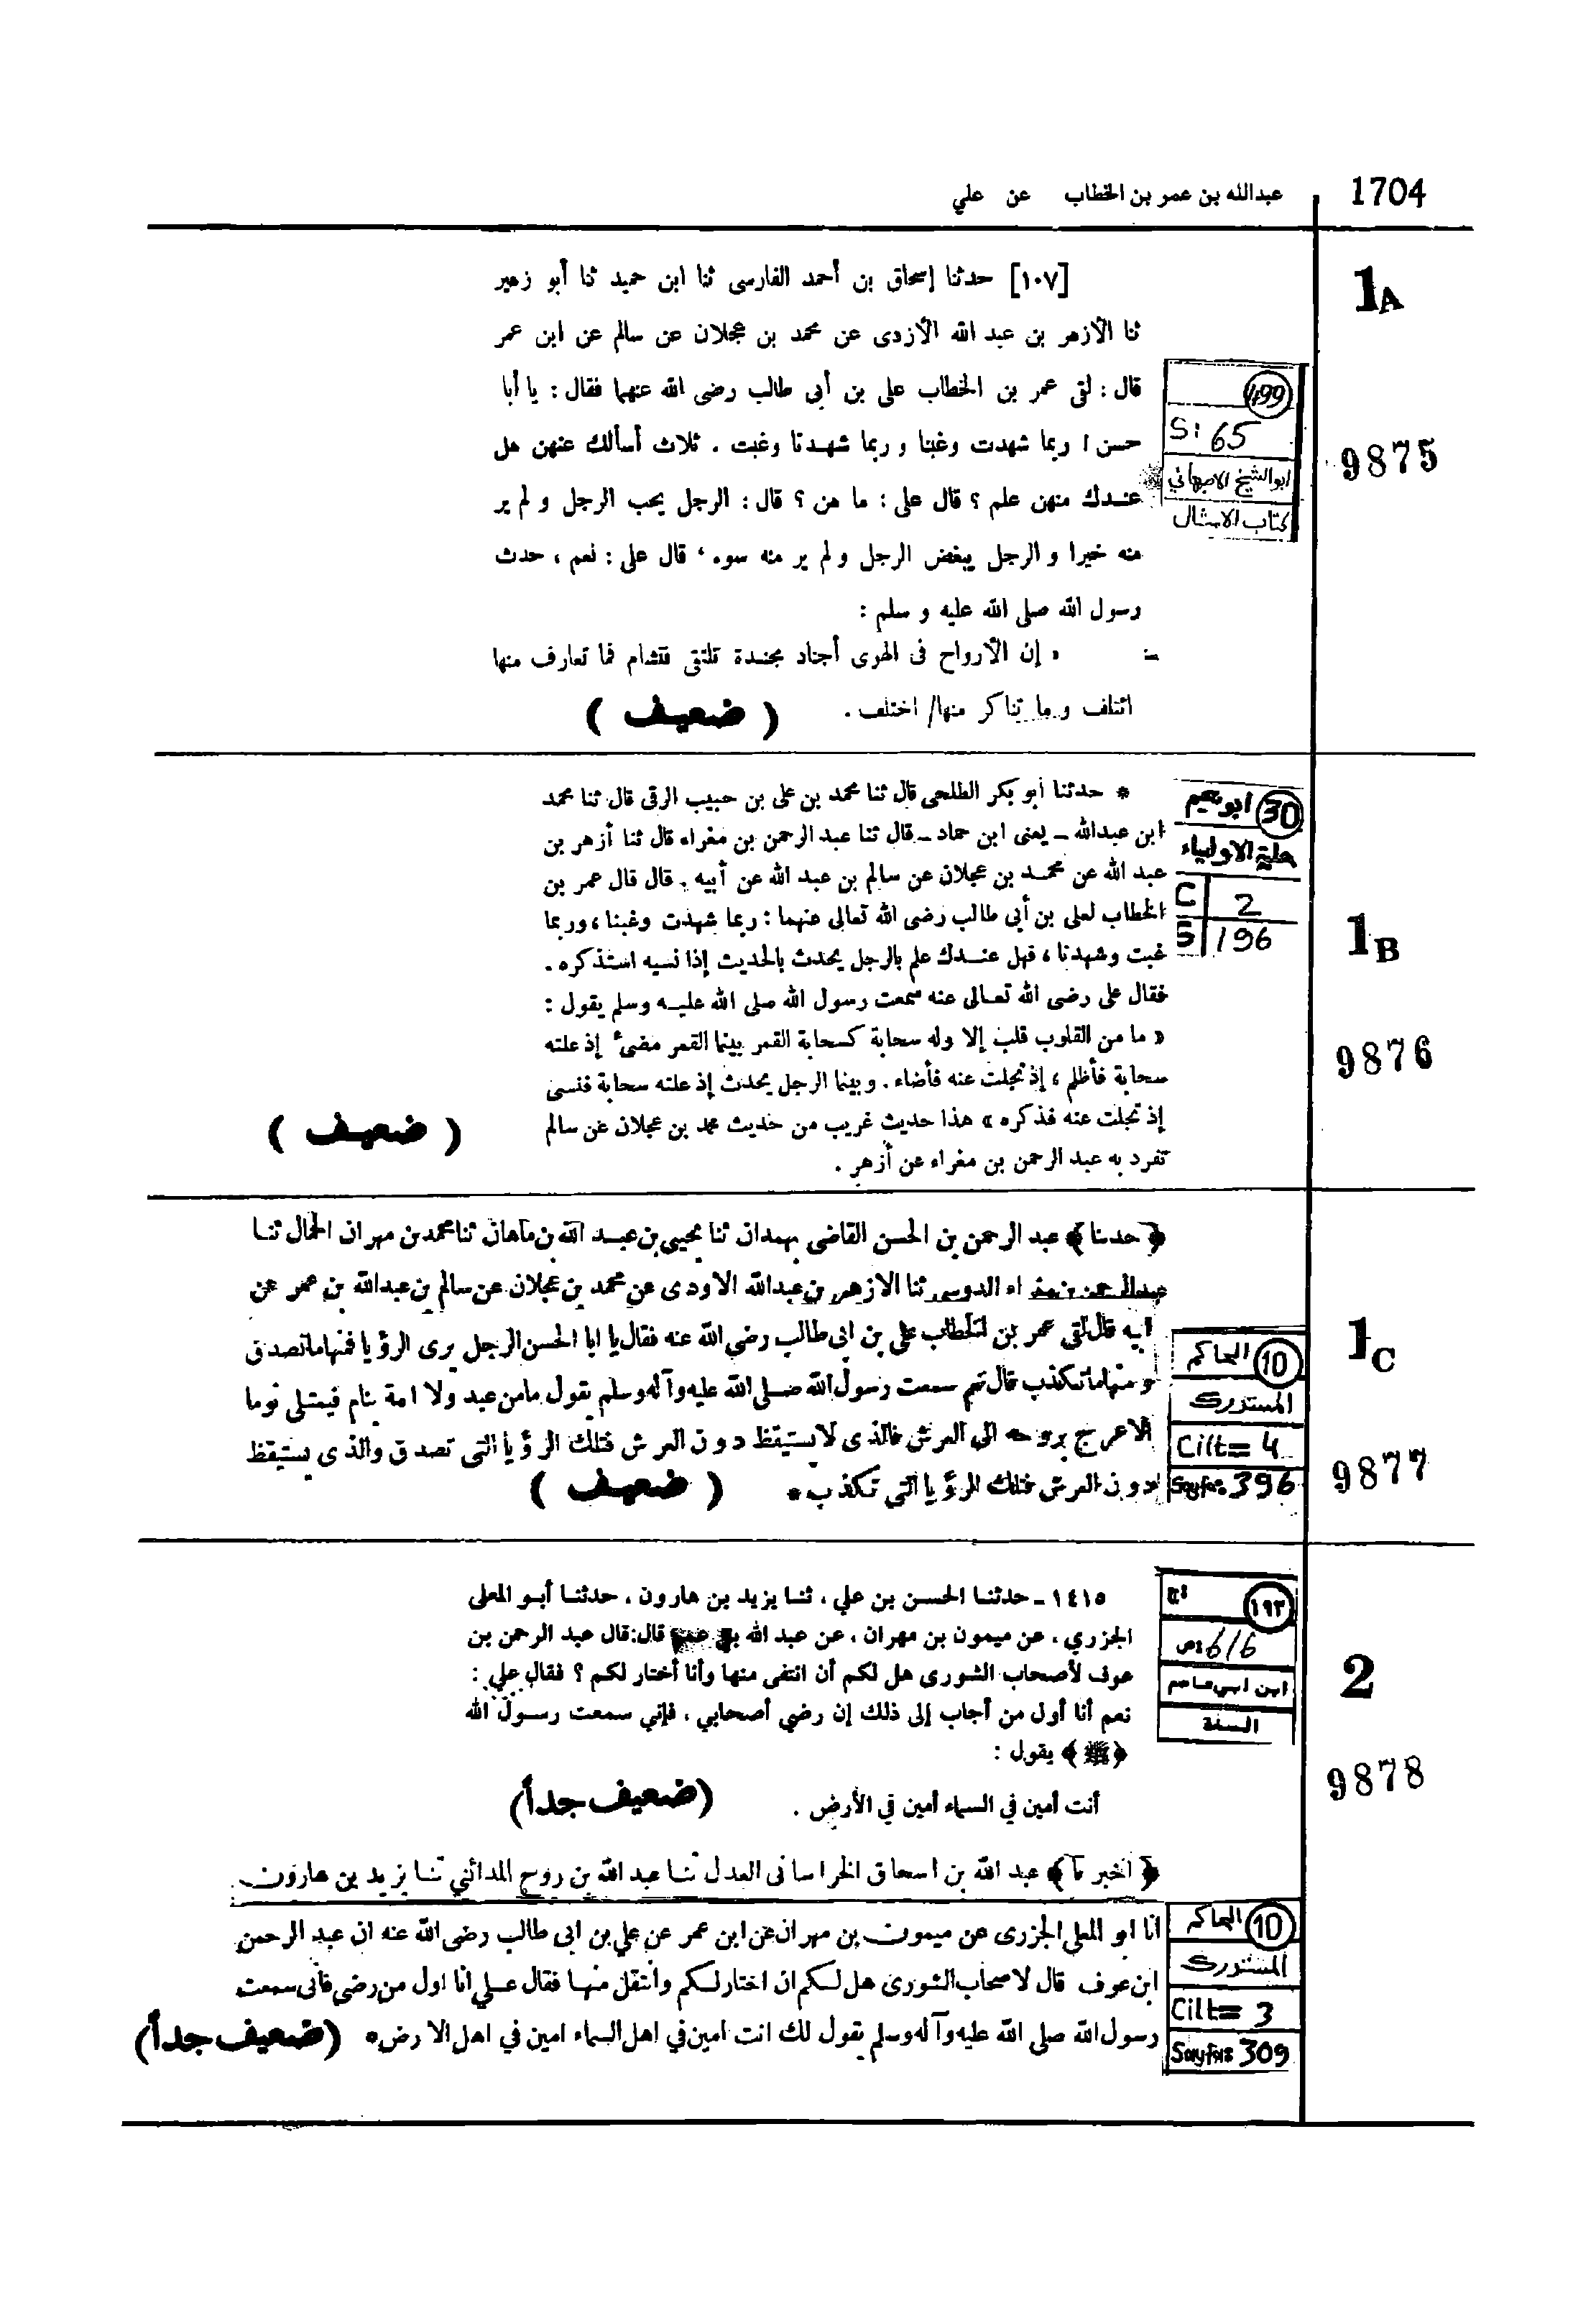 1704
عبدالله بن عمر بن الخطاب عن علي
1A
[١٠٧] حدثنا إسحاق بن أحمد الفارسى ثنا ابن حميد ثنا أبو زهير
ثنا الأزهر بن عبد الله الأزدى عن محمد بن عجلان عن سالم عن ابن عمر
قال : لقى عمر بن الخطاب على بن أبى طالب رضى الله عنهما فقال : يا أبا
حسن ! ربما شهدت وغبنا و ربما شهدنا وغبت . ثلاث أسألك عنهن هل
عندك منهن علم ؟ قال على : ما هن ؟ قال : الرجل يحب الرجل و لم ير
منه خيرا و الرجل يبغض الرجل و لم ير منه سوء ، قال على : نعم ، حدث
رسول الله صلى الله عليه و سلم :
« إن الأرواح فى الهوى أجناد مجندة تلتقى فتشام فما تعارف منها
ائتلف و ما تناكر منها/ اختلف .
( ضعيف )
499
S: 65
ابو الشيخ الاصبهاني
كتاب الامثال
9875
1B
* حدثنا أبو بكر الطلحى قال ثنا محمد بن على بن حبيب الرقى قال ثنا محمد
ابن عبدالله ــ يعنى ابن حماد ــ قال ثنا عبد الرحمن بن مغراء قال ثنا أزهر بن
عبد الله عن محمد بن عجلان عن سالم بن عبد الله عن أبيه . قال قال عمر بن
الخطاب لعلى بن أبى طالب رضى الله تعالى عنهما : ربما شهدت وغبنا ، وربما
غبت وشهدنا ، فهل عندك علم بالرجل يحدث بالحديث إذا نسيه استذكره .
فقال على رضى الله تعالى عنه سمعت رسول الله صلى الله عليه وسلم يقول :
« ما من القلوب قلب إلا وله سحابة كسحابة القمر بينما القمر مضىء إذ علته
سحابة فأظلم ، إذ تجلت عنه فأضاء . وبينما الرجل يحدث إذ علته سحابة فنسى
إذ تجلت عنه فذكره » هذا حديث غريب من حديث محمد بن عجلان عن سالم
تفرد به عبد الرحمن بن مغراء عن أزهر .
( ضعيف )
30 ابو نعيم
حلية الاولياء
C 2
S 196
9876
1C
﴿ حدثنا ﴾ عبد الرحمن بن الحسن القاضى بهمدان ثنا يحيى بن عبد الله بن ماهان ثنا محمد بن مهران الحمال ثنا
عبد الرحمن بن مغراء الدوسى ثنا الازهر بن عبدالله الاودى عن محمد بن عجلان عن سالم بن عبدالله بن عمر عن
ابيه قال لقى عمر بن الخطاب على بن ابى طالب رضى الله عنه فقال يا ابا الحسن الرجل يرى الرؤيا فمنها ما تصدق
و منها ما تكذب قال نعم سمعت رسول الله صلى الله عليه وآله وسلم يقول ما من عبد ولا امة ينام فيمتلى نوما
الا عرج بروحه الى العرش فالذى لا يستيقظ دون العرش فتلك الرؤيا التى تصدق والذى يستيقظ
دون العرش فتلك الرؤيا التى تكذب *
( ضعيف )
10 الحاكم
المستدرك
Cilt= 4
Sayfa: 396
9877
2
١٤١٥ ـ حدثنا الحسن بن علي ، ثنا يزيد بن هارون ، حدثنا أبو المعلى
الجزري ، عن ميمون بن مهران ، عن عبد الله بن عمر قال : قال عبد الرحمن بن
عوف لأصحاب الشورى هل لكم أن انتفى منها وأنا أختار لكم ؟ فقال علي :
نعم أنا أول من أجاب إلى ذلك إن رضي أصحابي ، فإني سمعت رسول الله
﴿ﷺ﴾ يقول :
أنت أمين في السماء أمين في الأرض .
(ضعيف جداً)
١٩٣
ص: 616
ابن ابي عاصم
السنة
9878
﴿ اخبرنا ﴾ عبد الله بن اسحاق الخراسانى العدل ثنا عبد الله بن روح المدائني ثنا يزيد بن هارون
انا ابو المعلى الجزرى عن ميمون بن مهران عن ابن عمر عن علي بن ابى طالب رضى الله عنه ان عبد الرحمن
ابن عوف قال لاصحاب الشورى هل لكم ان اختار لكم وانتقل منها فقال على انا اول من رضى فانى سمعت
رسول الله صلى الله عليه وآله وسلم يقول لك انت امين في اهل السماء امين في اهل الارض *
(ضعيف جداً)
10 الحاكم
المستدرك
Cilt= 3
Sayfa: 309